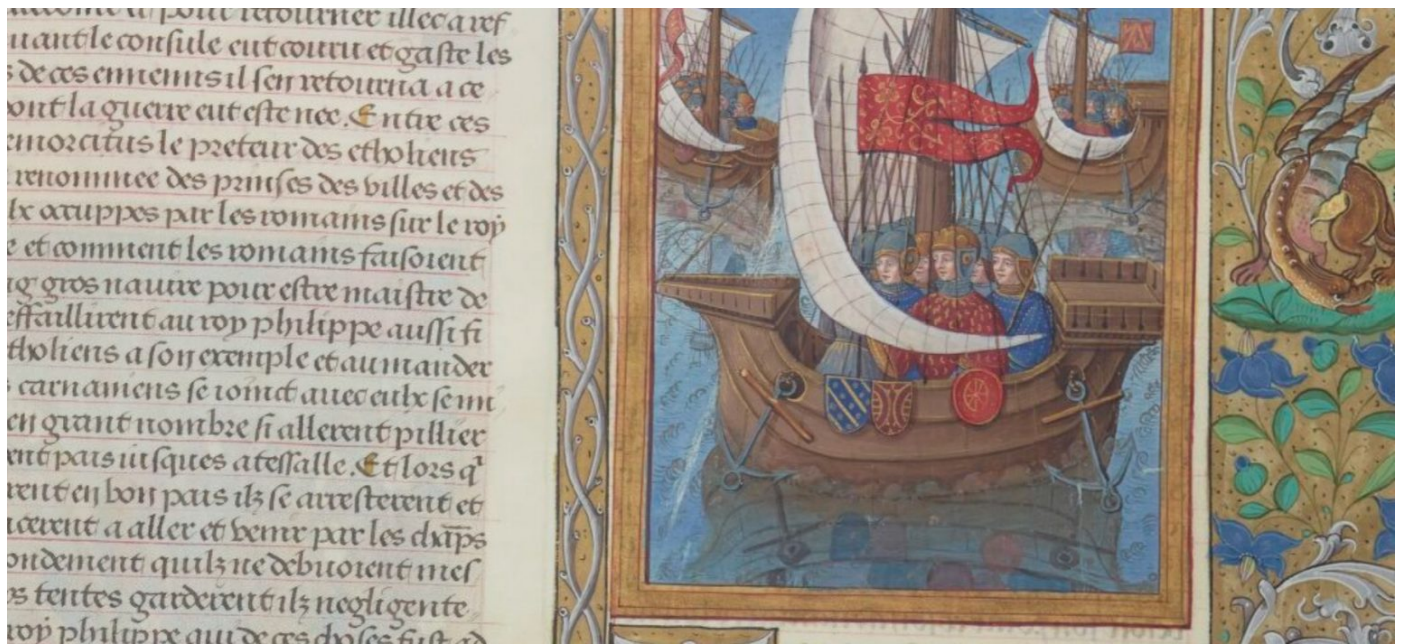 pour retourner illec a ref
uant le consule eut couru et gaste les
s de ces ennemis il sen retourna a ce
ont la guerre eut este nee. Entre ces
emorcitus le preteur des etholiens
renommee des prinses des villes et des
lx occuppes par les romains sur le roy
e et comment les romains faisoient
ng gros nauire pour estre maistre de
effaillirent au roy philippe aussi fi
tholiens a son exemple et au mander
s carnaniens se ioinct auec eulx se mi
en grant nombre si allerent pillier
ent pais iusques a tessalle. Et lors q
rent en bon pais ilz se arresterent et
cerent a aller et venir par les chaps
ondement quilz ne debuoient mes
s tentes garderent ilz negligente
roy philippe qui de ces choses fust